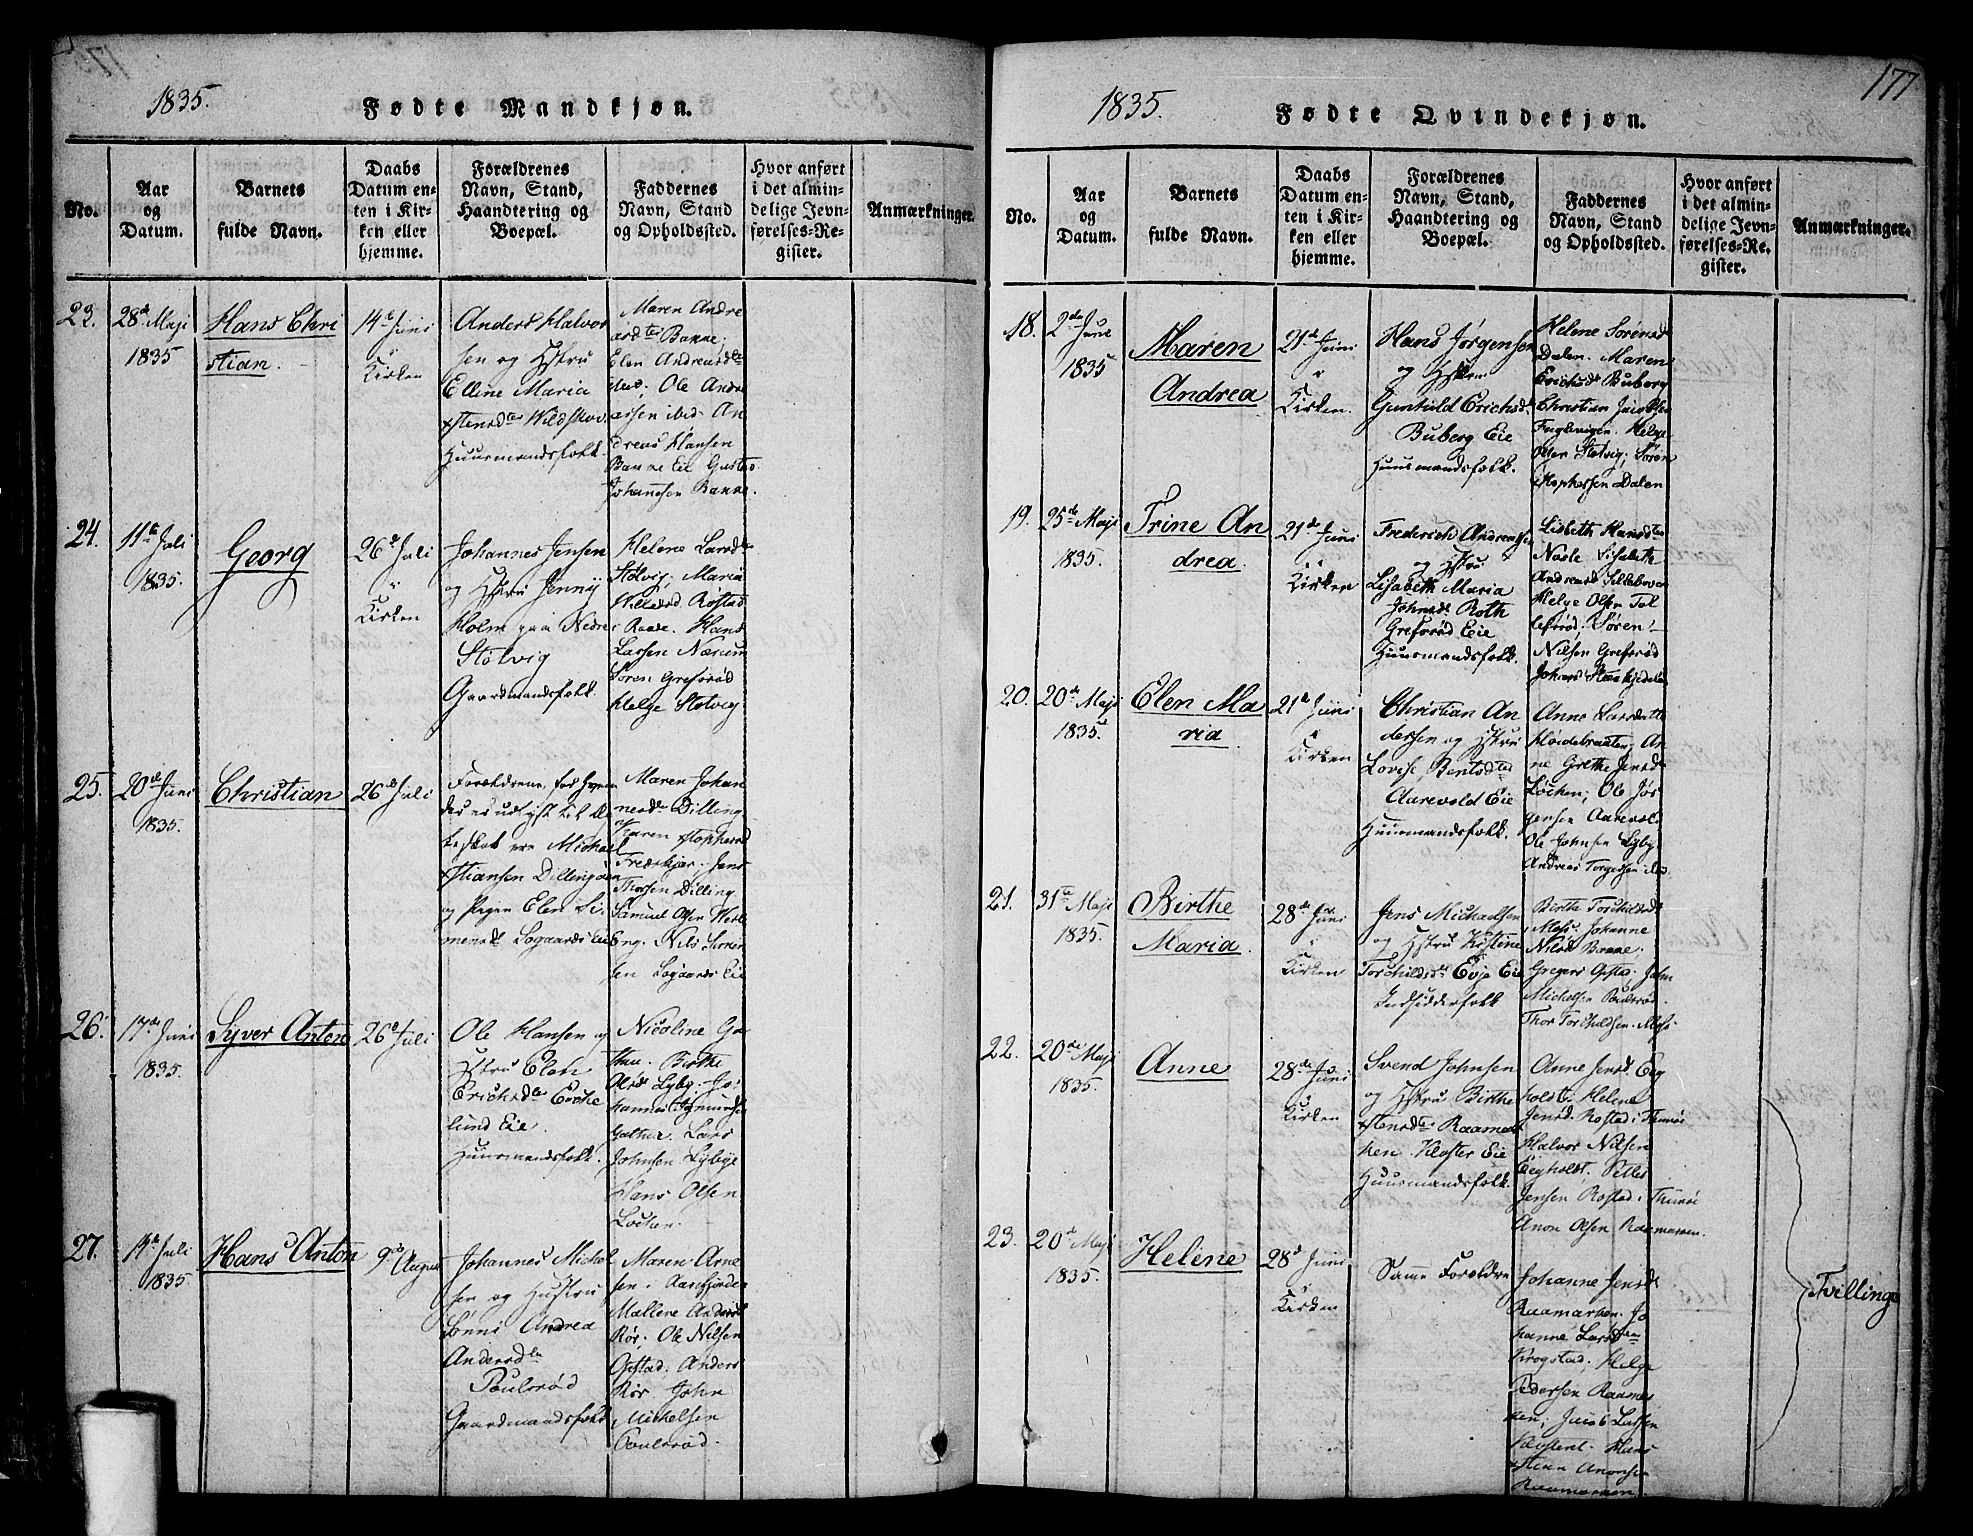 1835.
Fødte Mandkjøn.
No.
Aar
og
Datum.
Barnets
fulde Navn.
Daabs
Datum en-
ten i Kir-
ken eller
hjemme.
Forældrenes
Navn, Stand,
Haandtering og
Boepæl.
Faddernes
Navn, Stand
og Opholdssted.
Hvor anført
i det almin-
delige Jevn-
førelses-Re-
gister.
Anmærkninger.
23.
28de Maji
1835
Hans Chri
stian.
14de Juni
i
Kirken
Anders Halvor
sen og Hstru
Elline Maria
Wildskov.
Huusmandsfolk.
Maren Andre
asdter Banne;
Elen Andreasdtr
Ole Andre
assen ibid. An
dreas Hansen
Banne Eie Gustav
Johannesen Banne.
24.
11te Juli
1835.
Georg
26de Juli
i
Kirken
Johannes Jensen
og Hstru Jenny
Holm paa Nedre
Stølvig
Gaardmandsfolk.
Helene Larsdtr
Stølvig; Maria
Røstad
i Raade. Hans
Larsen Nærum
Søren Grefsrød
Helge Stølvig
25.
20de Juni
1835.
Christian
26de Juli
Forældrene, for hvem
Michael
stiansen Dillingøen
og Pigen Elen Si
monsdr Sogaards Eie
Maren Johan
nesdr Dilling
Karen stophersd
Jens
Thorsen Dilling.
Samuel Olsen
Eng. Nils Simen
sen Sogaards Eie
26.
17de Juni
1835.
Syver Anton
26de Juli
Ole Hansen og
Hstru Elen
Erichsdtr
lund Eie.
Huusmandsfolk.
Nicoline
Birthe
Olsdr Lyby. Jo
hannes
Lars
Johnsen Lybye
Hans Olsen
Lochen.
27.
14de Juli
1835
Hans Anton
9de August
Johannes Michel
sen og Hustru
Andrea
Andersdtr
Poulsrød
Gaardmandsfolk
Maren Arne
Mallene Andersdr
Rør. Ole Nilsen
Opstad. Anders
Rør John
Michelsen
Poulsrød.
177
1835.
Fødte Qvindekjøn.
No.
Aar
og
Datum.
Barnets
fulde Navn.
Daabs
Datum en-
ten i Kir-
ken eller
hjemme.
Forældrenes
Navn, Stand,
Haandtering og
Boepæl.
Faddernes
Navn, Stand
og Opholdssted.
Hvor anført
i det almin-
delige Jevn-
førelses-Re-
gister.
Anmærkninger.
18.
2de June
1835
Maren
Andrea
21de Juni
i
Kirken.
Hans Jørgensen
og Hstru
Gunhild Erichsdr
Buberg Eie
Huusmandsfolk.
Helene Sørensd
Dalen. Maren
Erichsdr Buberg
Christian
Fuglevigen. Helge
Olsen Stølvig; Søren
Kristophersen Dalen
19.
25de Maji
1835.
Trine An
drea.
21de Juni
i
Kirken
Frederich Andreassen
og Hstru
Lisabeth Maria
Johnsdr Roth
Grefsrød Eie
Huusmandsfolk.
Lisbeth Hansdter
Lisabeth
Andreasd
Helge Olsen Tol
lefsrød; Søren
Nilsen Grefsrød
Johans
20.
20de Maji
1835.
Elen Ma
ria.
21de Juni
i
Kirken
Christian An
dersen og Hstru
Lovise Bentsdtr
Aarevold Eie
Huusmandsfolk.
Anne Larsdatter
Høidebraaten; An
ne Grethe Jensd
Lochen; Ole Jør
gensen Aarevold
Ole Johnsen Lyby
Andreas Torgersen ibid
21.
31te Maji
1835.
Birthe
Maria.
28de Juni
i
Kirken
Jens Michaelsen
og Hstru Kistine
Torchildsdr Evje Eie
Indsidderfolk
Birthe Torchildsdr
Moss. Johanne
Nilsd Banne;
Gregers Opstad. John
Michelsen Poulsrød.
Thor Torchildsen. Moss
22.
20de Maji
1835.
Anne
28de Juni
i
Kirken
Svend Johnsen
og Hstru Birthe
Raamar
ken. Kloster Eie
Huusmandsfolk.
Anne Jensd Eeg
holdt. Helene
Jensd. Rostad i Thunøe
Halvor Nilsen
Eegholdt. Pelle
Jensen Rostad i Thunøe
Anon Olsen Raamarken.
23.
20de Maji
1835.
Helene
28de Juni
i
Kirken
Samme Forældre
Johanne Jensdr
Raamarken. Jo
hanne Larsd
Krogstad. Helge
Pedersen Raamar
ken; Jacob Larsen
Hans
Anonsen
Raamarken
Tvillinge